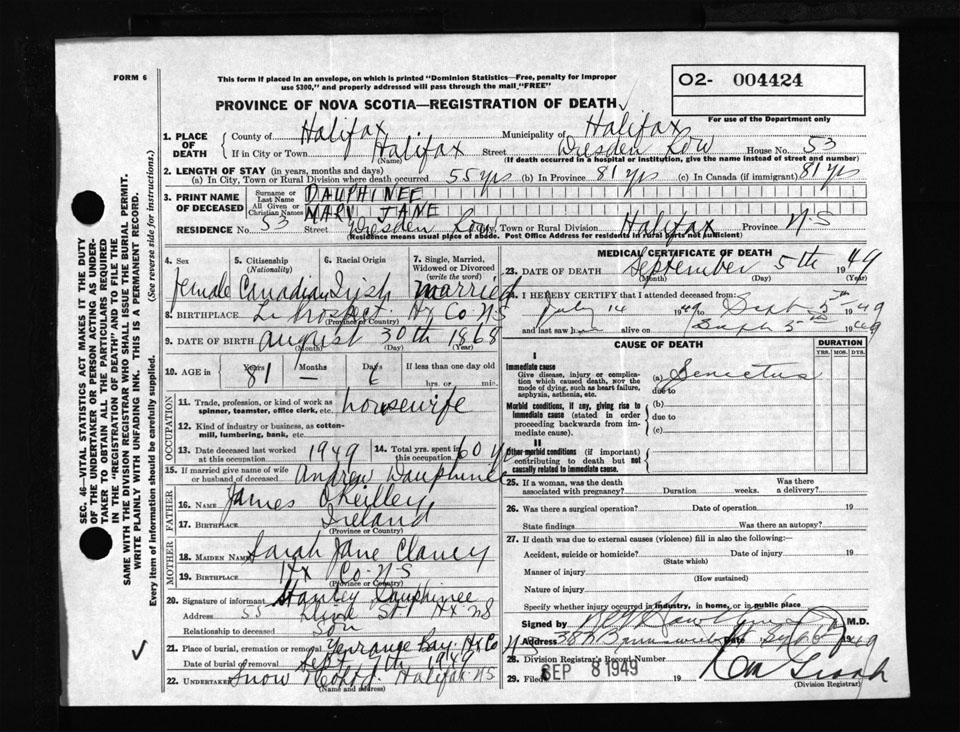 FORM 6
This form if placed in an envelope, on which is printed "Dominion Statistics—Free, penalty for improper
use $300," and properly addressed will pass through the mail "FREE"
O2- 004424
For use of the Department only
PROVINCE OF NOVA SCOTIA—REGISTRATION OF DEATH
1. PLACE OF DEATH
County of Halifax Municipality of Halifax
If in City or Town Halifax Street Dresden Row House No. 53
(Name) (If death occurred in a hospital or institution, give the name instead of street and number)
2. LENGTH OF STAY (in years, months and days)
(a) In City, Town or Rural Division where death occurred 55 yrs (b) In Province 81 yrs (c) In Canada (if immigrant) 81 yrs
3. PRINT NAME OF DECEASED
Surname or Last Name DAUPHINEE
All Given or Christian Names MARY JANE
RESIDENCE No. 53 Street Dresden Row City, Town or Rural Division Halifax Province N-S
(Residence means usual place of abode. Post Office Address for residents in rural parts not sufficient)
4. Sex Female
5. Citizenship (Nationality) Canadian
6. Racial Origin Irish
7. Single, Married, Widowed or Divorced (write the word) married
8. BIRTHPLACE Prospect Hx Co N-S
(Province or Country)
9. DATE OF BIRTH August 30th 1868
(Month) (Day) (Year)
10. AGE in Years 81 Months — Days 6 If less than one day old
hrs. or min.
OCCUPATION
11. Trade, profession, or kind of work as
spinner, teamster, office clerk, etc. housewife
12. Kind of industry or business, as cotton-
mill, lumbering, bank, etc.
13. Date deceased last worked at this occupation 1949
14. Total yrs. spent in this occupation 60 yrs
15. If married give name of wife
or husband of deceased Andrew Dauphinee
FATHER
16. NAME James O'Reilley
17. BIRTHPLACE Ireland
(Province or Country)
MOTHER
18. MAIDEN NAME Sarah Jane Clancy
19. BIRTHPLACE Hx Co-N-S
(Province or Country)
20. Signature of informant Stanley Dauphinee
Address St Hx NS
Relationship to deceased Son
21. Place of burial, cremation or removal Terrance Bay Hx Co
Date of burial or removal Sept 7th 1949
22. UNDERTAKER Snow & Co Ltd. Halifax N-S
(Name and address)
MEDICAL CERTIFICATE OF DEATH
23. DATE OF DEATH September 5th 1949
(Month) (Day) (Year)
24. I HEREBY CERTIFY that I attended deceased from
July 14 1949 to Sept 5th 1949
and last saw her alive on Sept 5th 1949
CAUSE OF DEATH
DURATION
YRS. MOS. DYS.
I
Immediate cause
Give disease, injury or compli-
cation which caused death, NOT the
mode of dying, such as heart failure,
asphyxia, asthenia, etc.
(a) Senectus
due to
Morbid conditions, if any, giving rise to
immediate cause (stated in order
proceeding backwards from im-
mediate cause).
(b)
due to
(c)
II
Other morbid conditions (if important)
contributing to death but not
causally related to immediate cause.
25. If a woman, was the death
associated with pregnancy? Duration weeks. Was there a delivery?
26. Was there a surgical operation? Date of operation 19
State findings Was there an autopsy?
27. If death was due to external causes (violence) fill in also the following:—
Accident, suicide or homicide? Date of injury 19
(State which)
Manner of injury
(How sustained)
Nature of injury
Specify whether injury occurred in industry, in home, or in public place
Signed by M.D.
Address Date Sept 6 1949
28. Division Registrar's Record Number
29. Filed SEP 8 1949 19
(Division Registrar)
SEC. 46—VITAL STATISTICS ACT MAKES IT THE DUTY
OF THE UNDERTAKER OR PERSON ACTING AS UNDER-
TAKER TO OBTAIN ALL THE PARTICULARS REQUIRED
IN THE "REGISTRATION OF DEATH" AND TO FILE THE
SAME WITH THE DIVISION REGISTRAR WHO SHALL ISSUE THE BURIAL PERMIT.
WRITE PLAINLY WITH UNFADING INK. THIS IS A PERMANENT RECORD.
Every item of information should be carefully supplied. (See reverse side for instructions.)